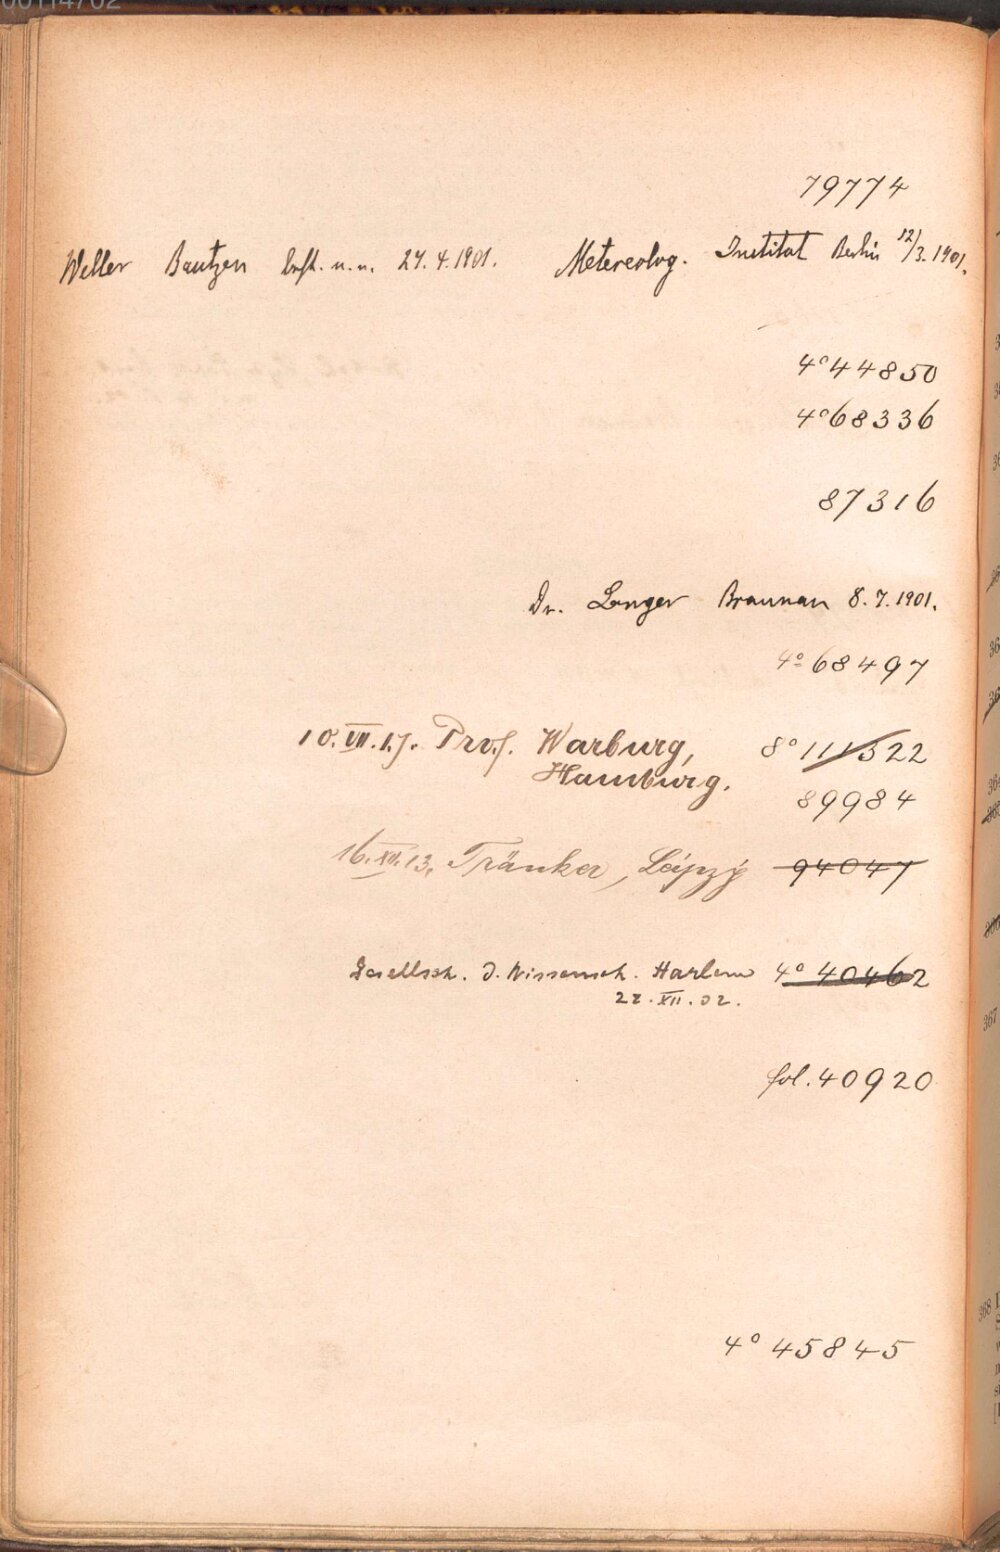 00114702
79774
Weller Bautzen best. n.n. 24.4.1901. Metereolog. Institut Berlin 12/3.1901.
4° 44850
4° 68336
87316
Dr. Langer Braunau 8.7.1901.
4° 68497
10.VII.17. Prof. Warburg, 8° 111522
Hamburg.
89984
16.XII.13, Tränker, Leipzig 94047
Gesellsch. d. Wissensch. Harlem 4° 40462
22.XII.02.
fol. 40920
4° 45845
367
368